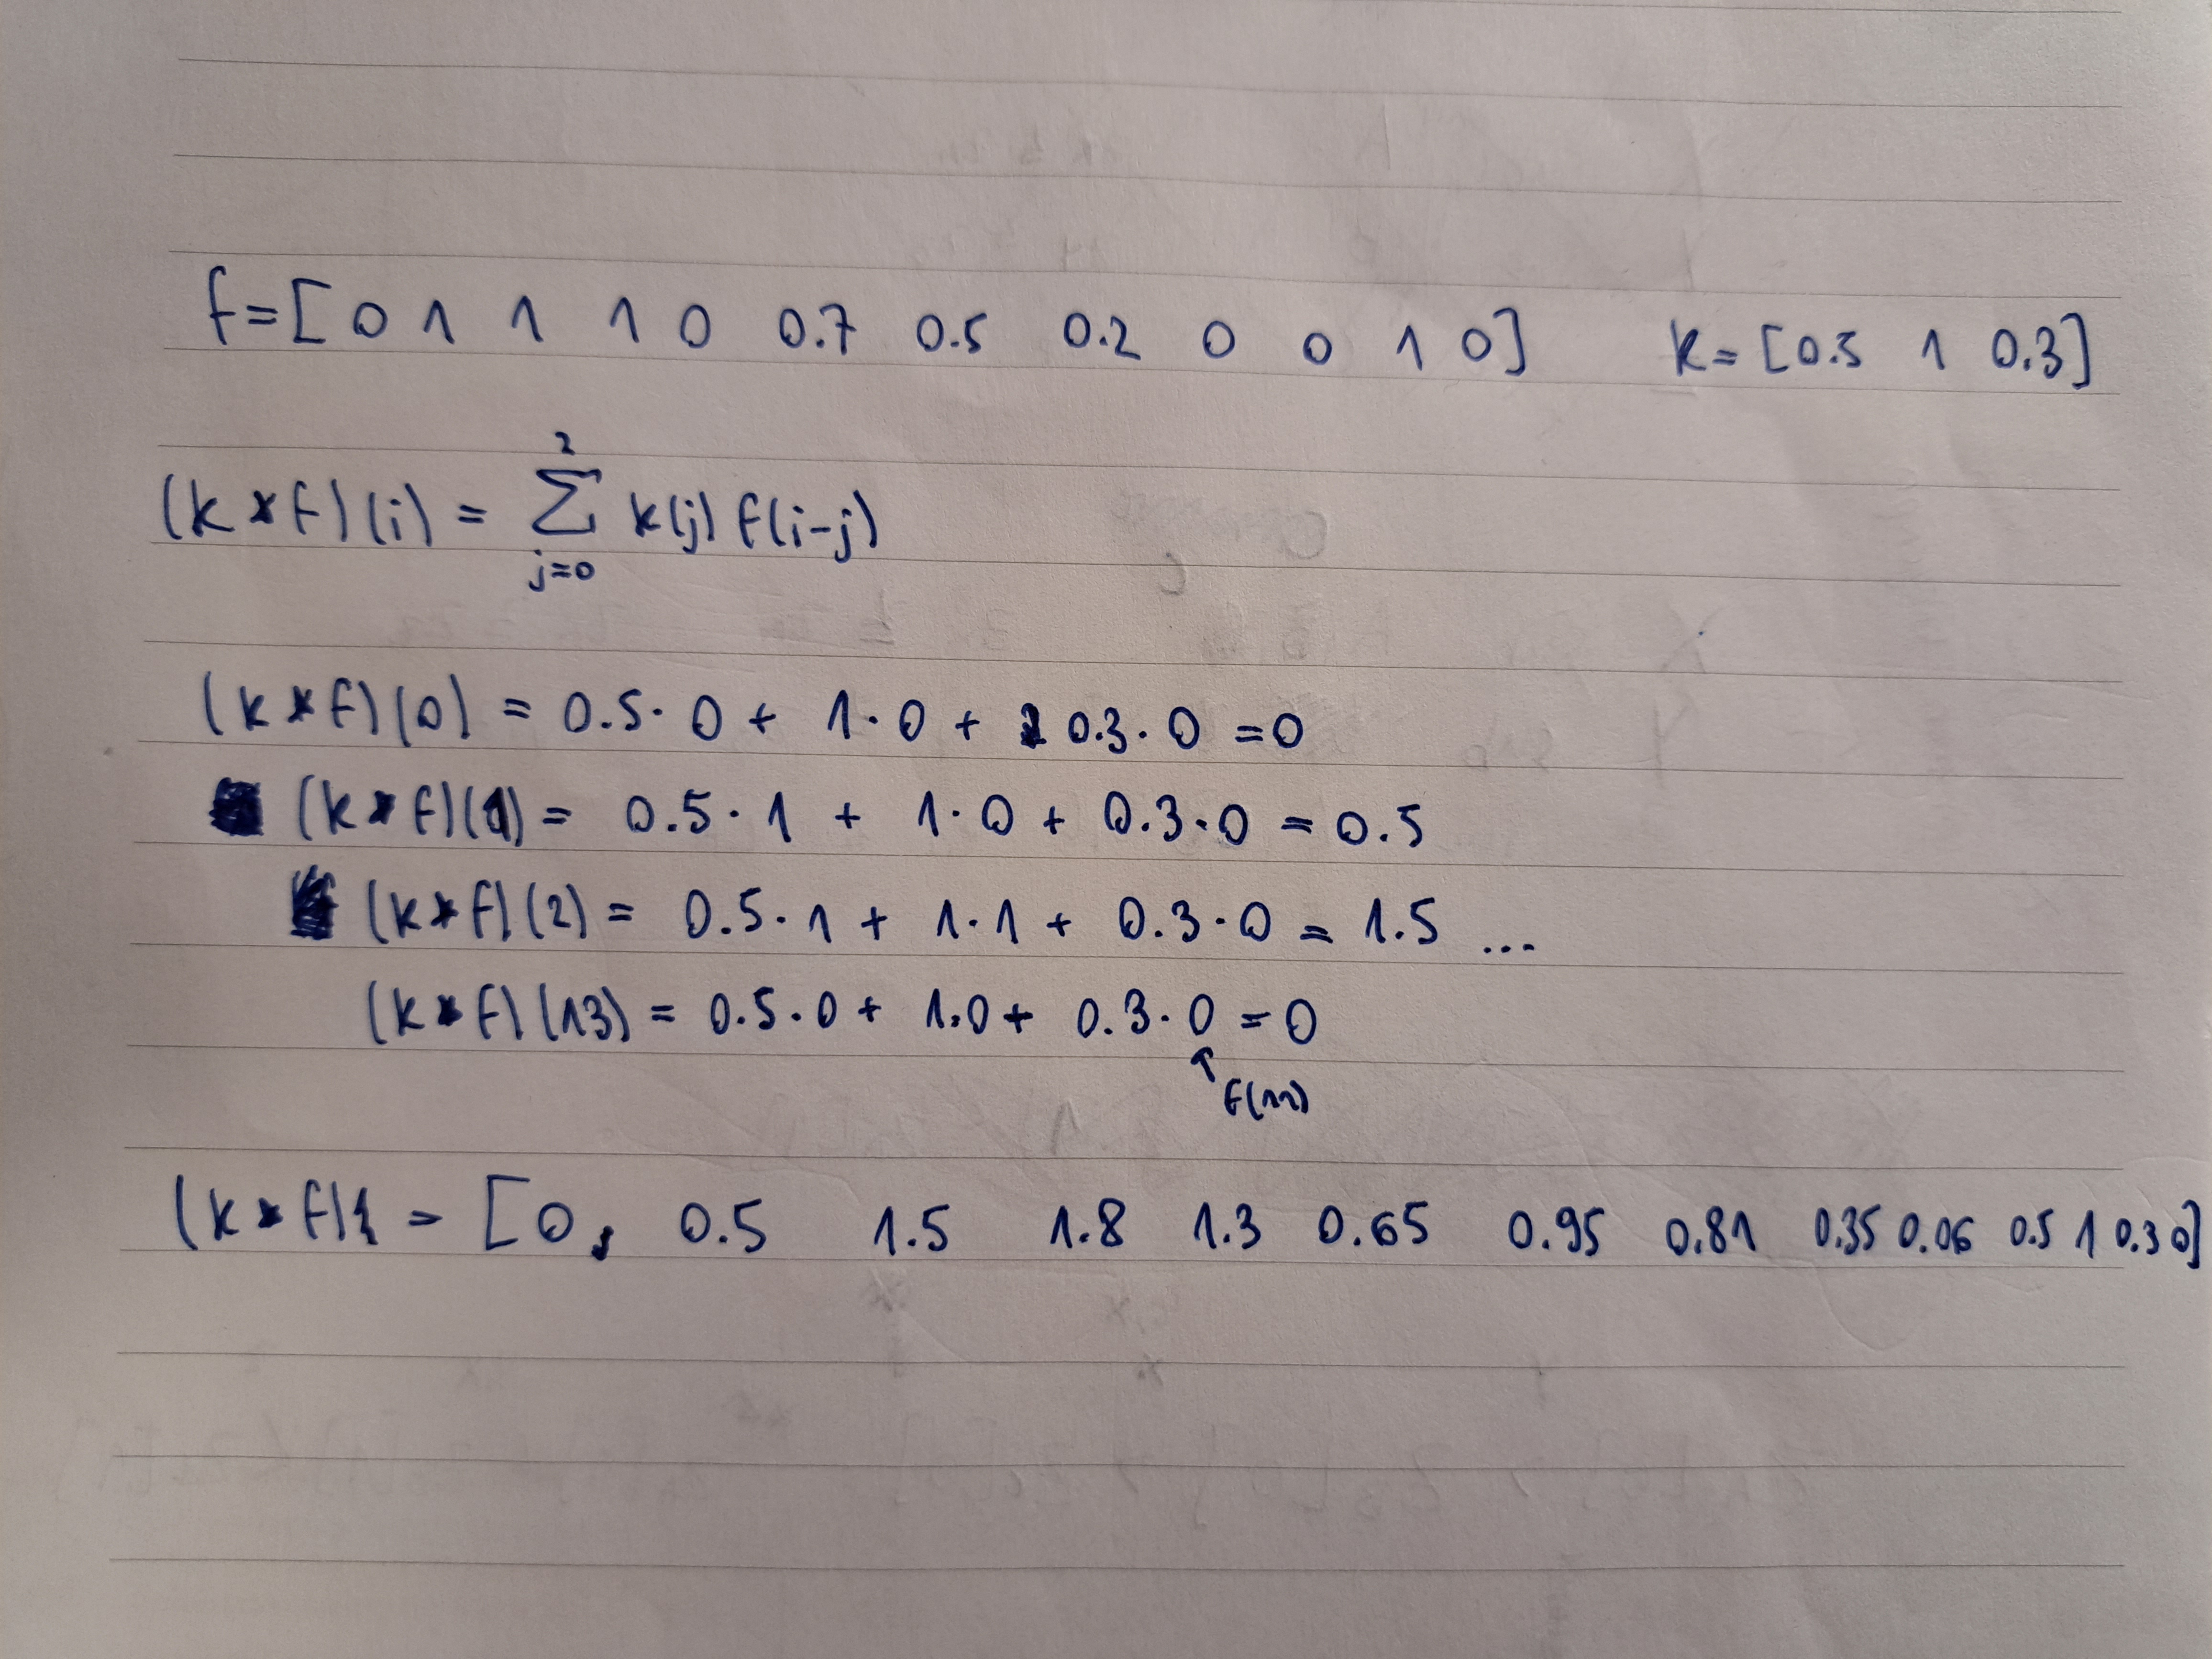 f = [0 1 1 1 0 0.7 0.5 0.2 0 0 1 0] k = [0.5 1 0.3]
(k * f)(i) = ∑ k(j) f(i-j)
2
j=0
(k * f)(0) = 0.5 · 0 + 1 · 0 + 0.3 · 0 = 0
(k * f)(1) = 0.5 · 1 + 1 · 0 + 0.3 · 0 = 0.5
(k * f)(2) = 0.5 · 1 + 1 · 1 + 0.3 · 0 = 1.5 ...
(k * f)(13) = 0.5 · 0 + 1.0 + 0.3 · 0 = 0
↑ f(11)
(k * f) = [0, 0.5 1.5 1.8 1.3 0.65 0.95 0.81 0.35 0.06 0.5 1 0.3 0]